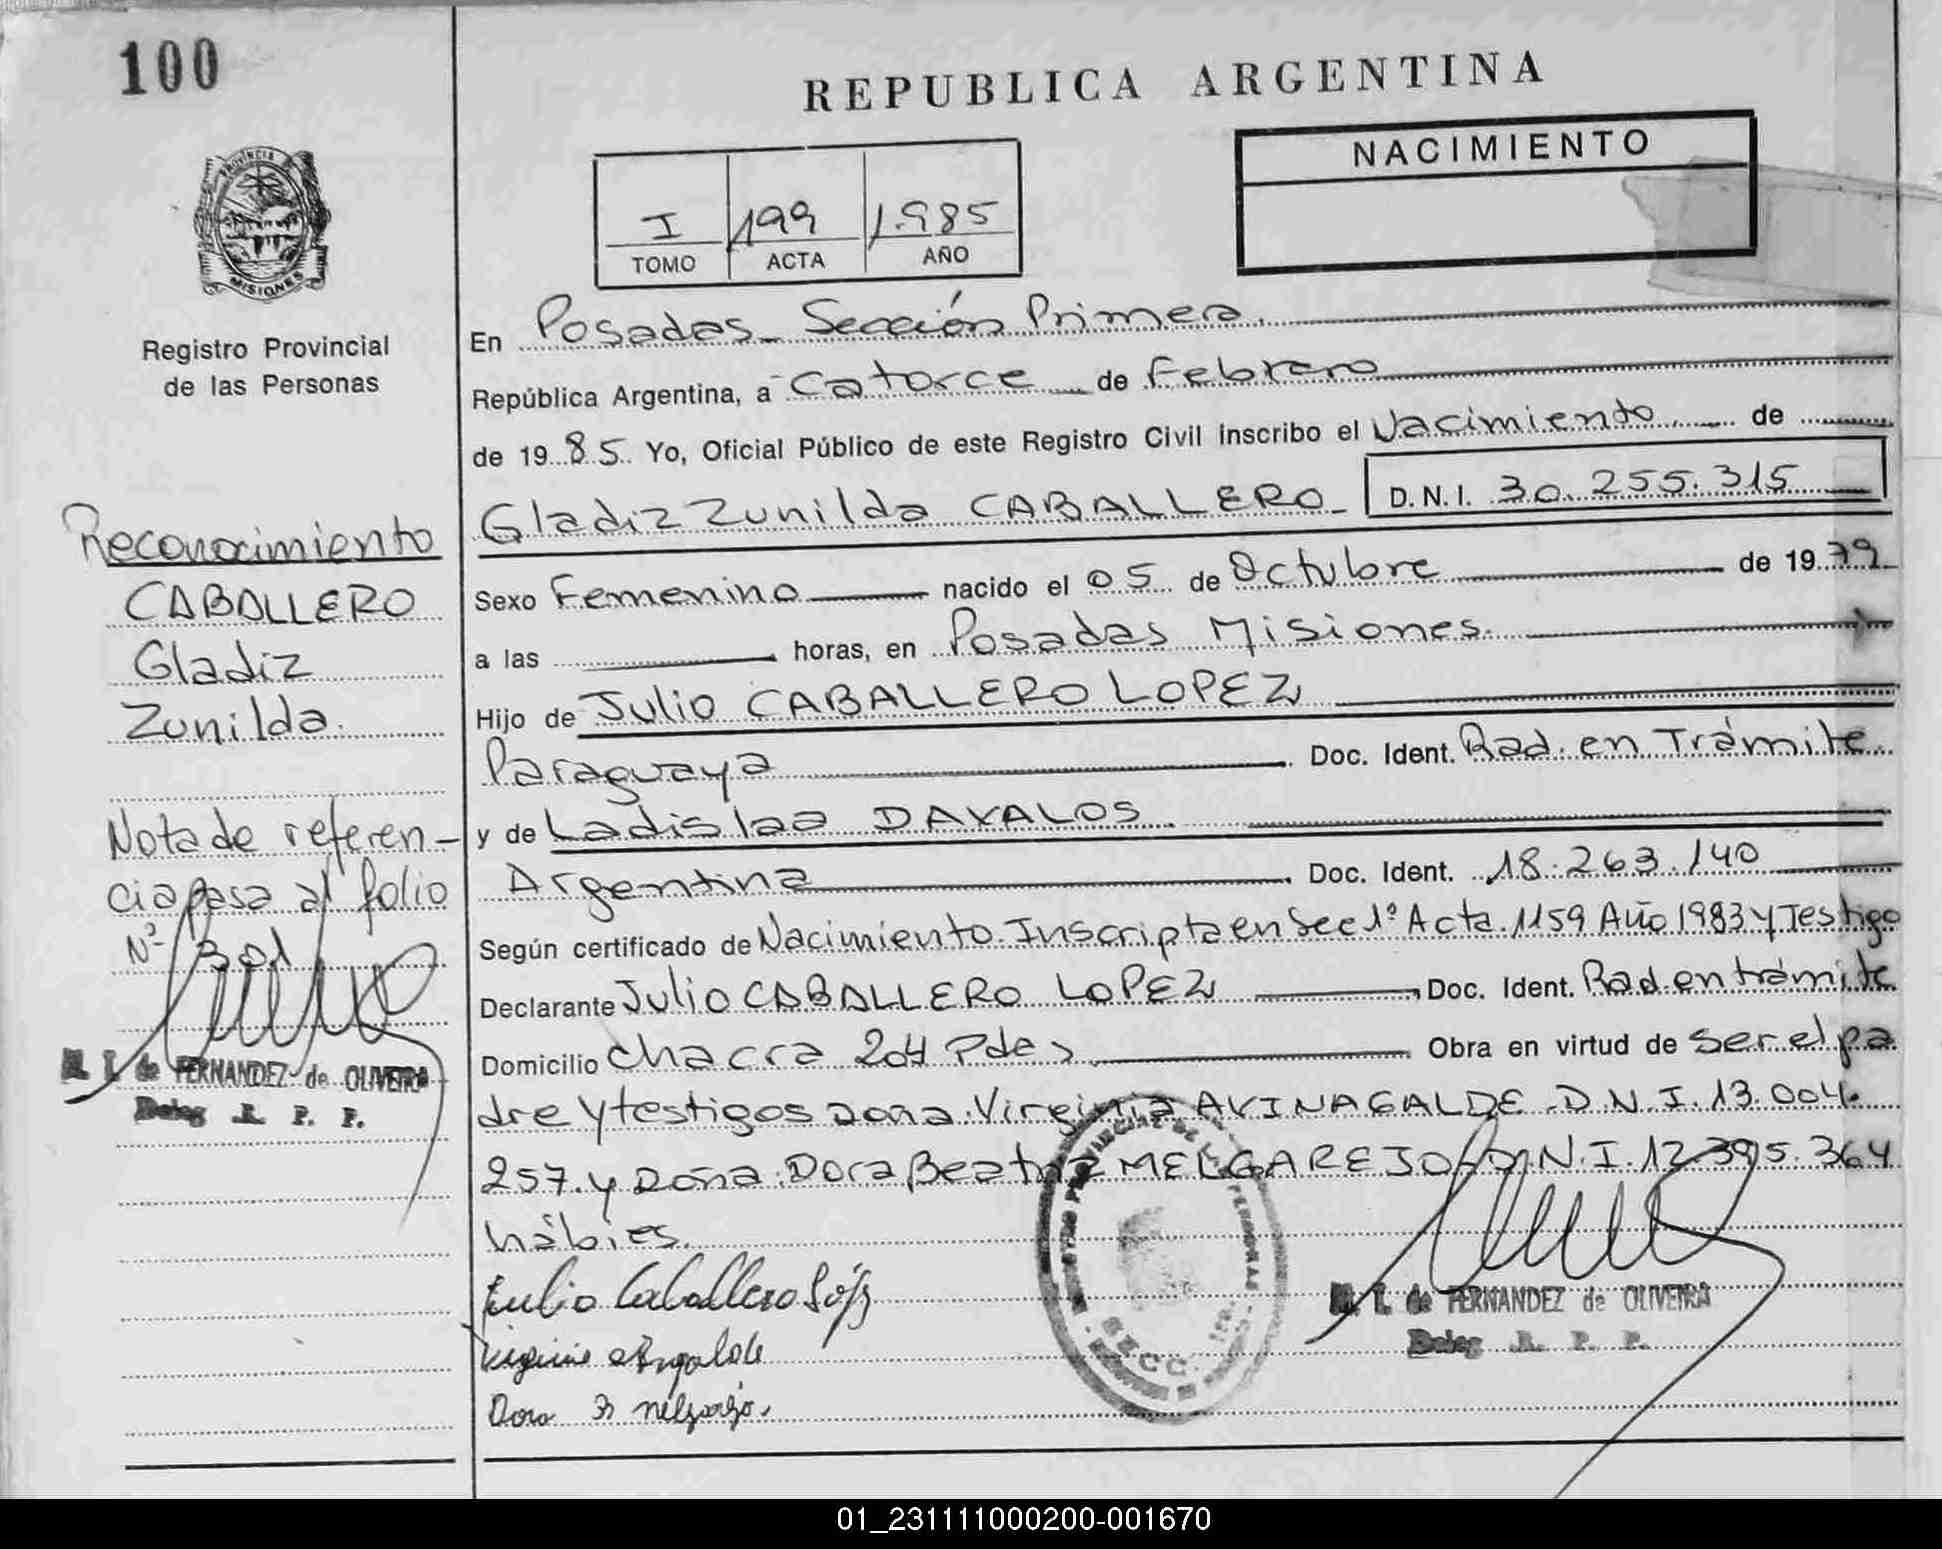 100
REPUBLICA ARGENTINA
NACIMIENTO
I 199 1.985
TOMO ACTA AÑO
PROVINCIA
MISIONES
Registro Provincial
de las Personas
Reconocimiento
CABALLERO
Gladiz
Zunilda.
Nota de referen-
cia pasa al folio
Nº 301
M. I. de FERNANDEZ de OLIVEIRA
Deleg R. P. P.
En Posadas_ Sección Primera.
República Argentina, a Catorce de Febrero
de 1985 Yo, Oficial Público de este Registro Civil Inscribo el Nacimiento de
Gladiz Zunilda CABALLERO_ D.N.I. 30.255.315
Sexo Femenino nacido el 05 de Octubre de 1979
a las horas, en Posadas Misiones.
Hijo de Julio CABALLERO LOPEZ
Paraguaya Doc. Ident. Rad. en Trámite
y de Ladislaa DAVALOS
Argentina Doc. Ident. 18.263.140
Según certificado de Nacimiento Inscripta en Sec 1º Acta 1159 Año 1983 y Testigo
Declarante Julio CABALLERO LOPEZ Doc. Ident. Rad en trámite
Domicilio chacra 204 Pdas Obra en virtud de ser el pa
dre y testigos doña Virginia AVINAGALDE D.N.I. 13.004.
257. y Doña Dora Beatriz MELGAREJO D.N.I. 12.395.364
hábies.
Julio Caballero López
Dora B Melgarejo
M. I. de FERNANDEZ de OLIVEIRA
Deleg R. P. P.
SECC. 1ra.
01_231111000200-001670